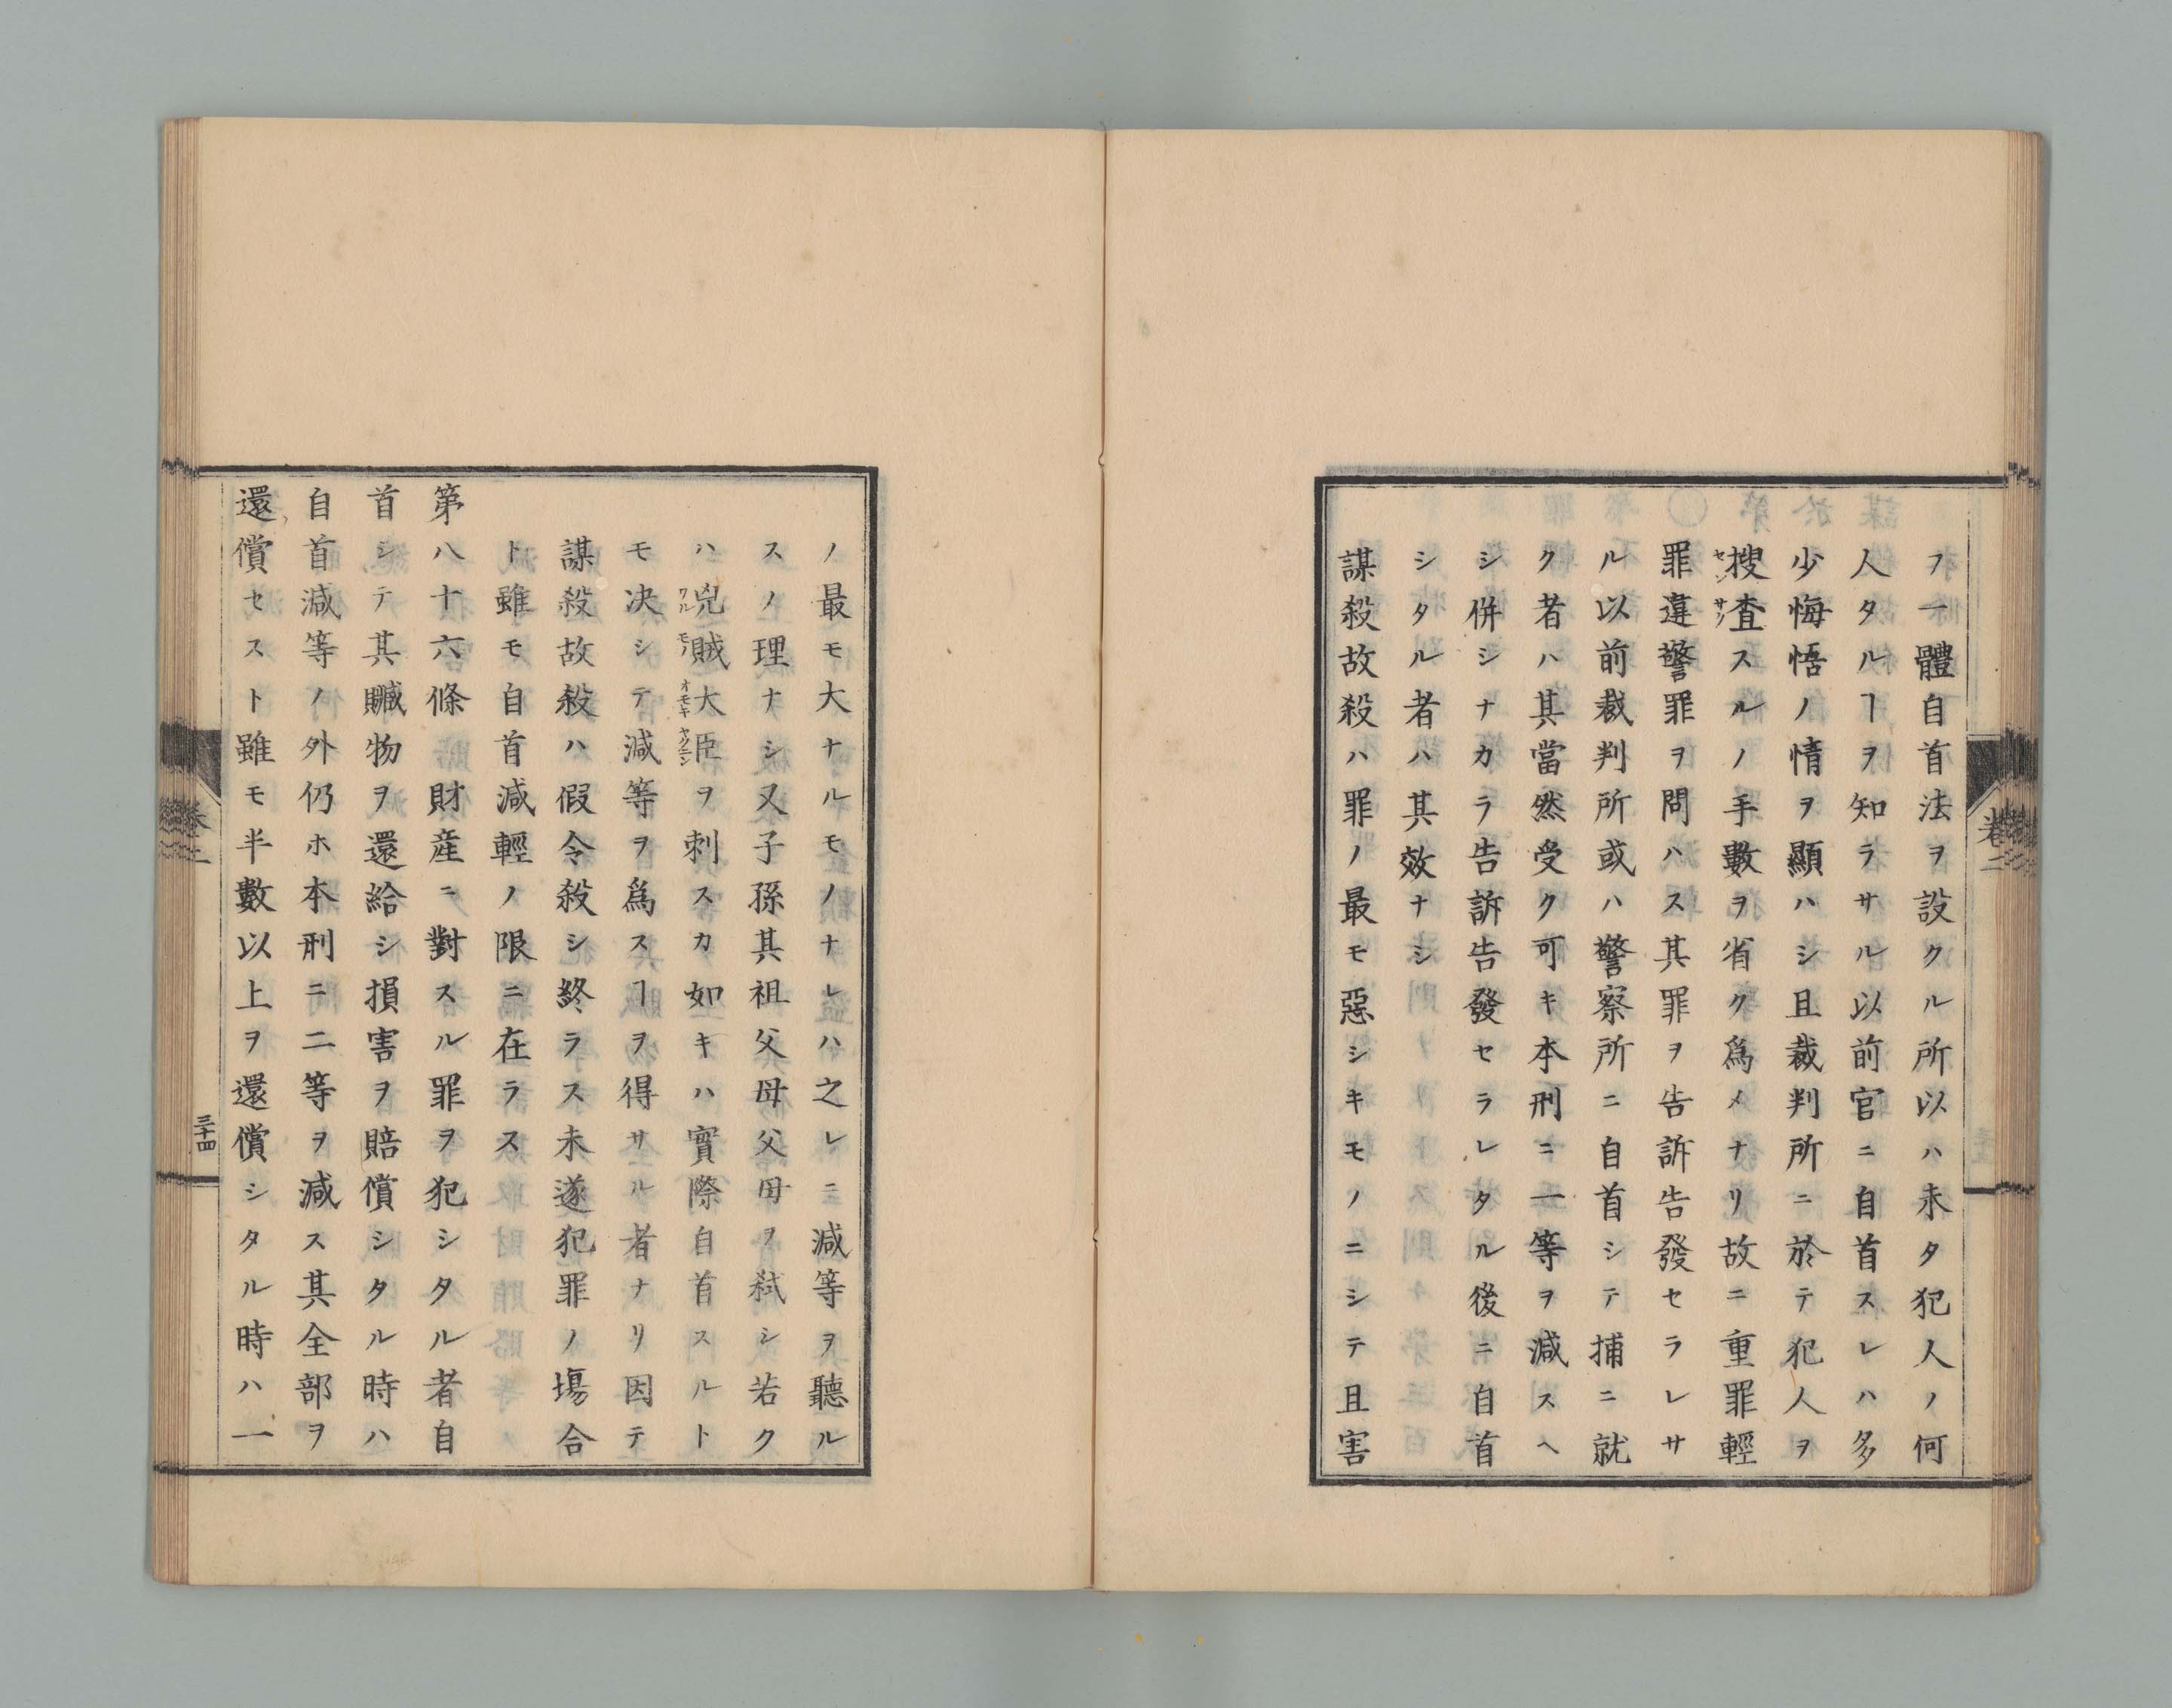 フ一體自首法ヲ設クル所以ハ未タ犯人ノ何
人タルヿヲ知ラサル以前官ニ自首スレハ多
少悔悟ノ情ヲ顯ハシ且裁判所ニ於テ犯人ヲ
搜査スルノ手數ヲ省ク爲メナリ故ニ重罪輕
罪違警罪ヲ問ハス其罪ヲ告訴告發セラレサ
ル以前裁判所或ハ警察所ニ自首シテ捕ニ就
ク者ハ其當然受ク可キ本刑ニ一等ヲ減スヘ
シ併シナカラ告訴告發セラレタル後ニ自首
シタル者ハ其效ナシ
謀殺故殺ハ罪ノ最モ惡シキモノニシテ且害
卷二
ノ最モ大ナルモノナレハ之レニ減等ヲ聽ル
スノ理ナシ又子孫其祖父母父母ヲ弑シ若ク
ハ兇賊大臣ヲ刺スカ如キハ實際自首スルト
ワル モノ オモキ ヤクニン
モ决シテ減等ヲ爲スヿヲ得サル者ナリ因テ
謀殺故殺ハ假令殺シ終ラス未遂犯罪ノ塲合
ト雖モ自首減輕ノ限ニ在ラス
第八十六條財産ニ對スル罪ヲ犯シタル者自
首シテ其贓物ヲ還給シ損害ヲ賠償シタル時ハ
自首減等ノ外仍ホ本刑ニ二等ヲ減ス其全部ヲ
還償セスト雖モ半數以上ヲ還償シタル時ハ一
三十四